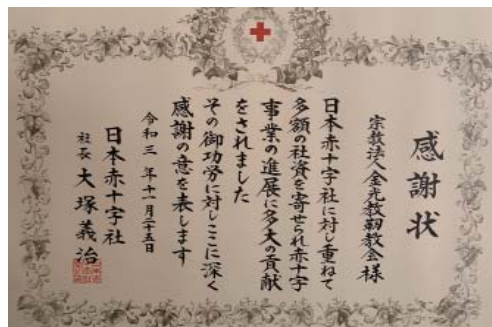 感謝状
宗教法人金光教靱教会様
日本赤十字社に対し重ねて
多額の社資を寄せられ赤十字
事業の進展に多大の貢献
をされました
その御功労に対しここに深く
感謝の意を表します
令和三年十一月二十五日
日本赤十字社
社長 大塚義治